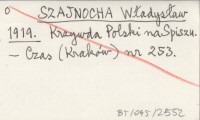 SZAJNOCHA Władysław
1919. Krzywda Polski na Spiszu.
– Czas (Kraków) nr 253.
BJ/095/2552